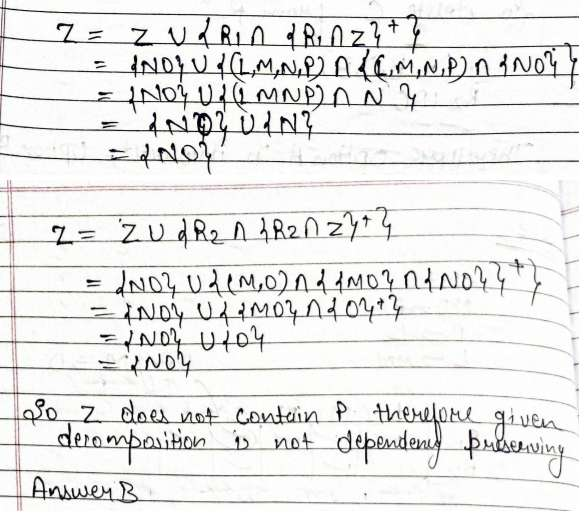 Z = Z ∪ {R1 ∩ {R1 ∩ Z}⁺}
= {NO} ∪ {(L,M,N,P) ∩ {(L,M,N,P) ∩ {NO}}
= {NO} ∪ {(LMNP) ∩ N }
= {NO} ∪ {N}
= {NO}
Z = Z ∪ {R2 ∩ {R2 ∩ Z}⁺}
= {NO} ∪ {(M,O) ∩ {{MO} ∩ {NO}}⁺}
= {NO} ∪ {{MO} ∩ {O}⁺}
= {NO} ∪ {O}
= {NO}
So Z does not contain P therefore given
decomposition is not dependency preserving
Answer B